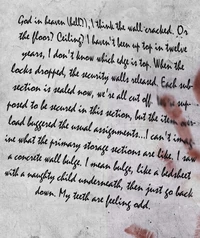 God in heaven (hell?), I think the wall cracked. Or
the floor? (Ciling) I haven't been up top in twelve
years, I don't know which edge is top. When the
locks dropped, the security walls released. Each sub-
section is sealed now, we're all cut off. sup-
posed to be secured in this section, but the item over-
load buggered the usual assignments...I can't imag-
ine what the primary storage sections are like. I saw
a concrete wall bulge. I mean bulge, like a bedsheet
with a naughty child underneath, then just go back
down. My teeth are feeling odd.